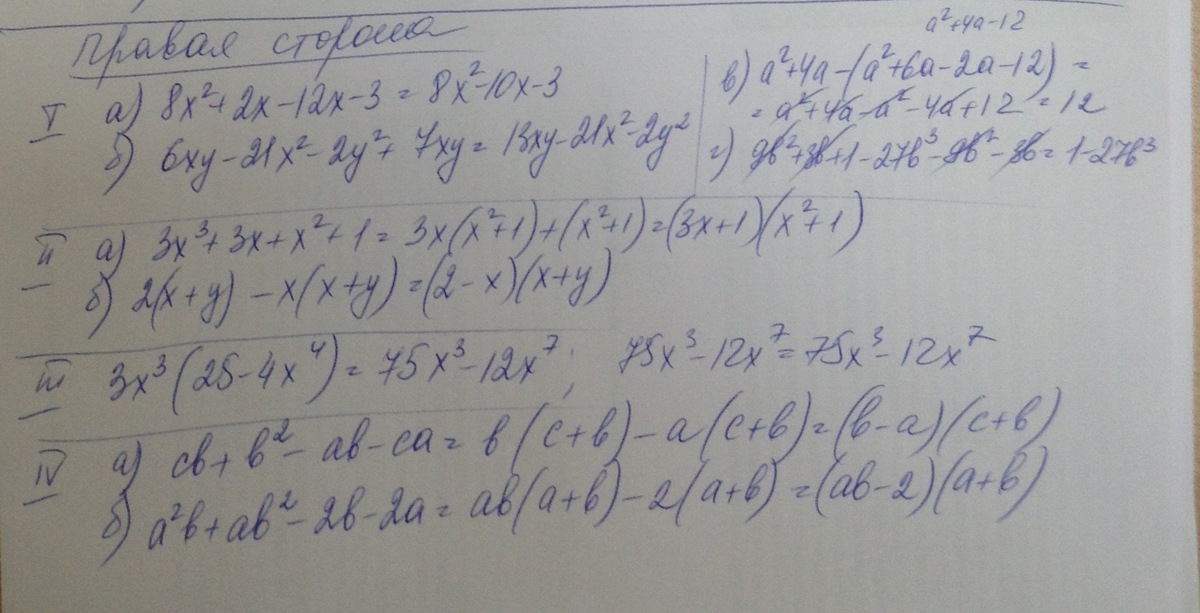 Правая сторона
I а) 8x²+2x-12x-3 = 8x²-10x-3
б) 6xy-21x²-2y²+7xy = 13xy-21x²-2y²
a²+4a-12
в) a²+4a-(a²+6a-2a-12) =
= a²+4a-a²-4a+12 = 12
г) 9b²+3b+1-27b³-9b²-3b = 1-27b³
II а) 3x³+3x+x²+1 = 3x(x²+1)+(x²+1) = (3x+1)(x²+1)
б) 2(x+y)-x(x+y) = (2-x)(x+y)
III 3x³(25-4x⁴) = 75x³-12x⁷; 75x³-12x⁷ = 75x³-12x⁷
IV а) cb+b²-ab-ca = b(c+b)-a(c+b) = (b-a)(c+b)
б) a²b+ab²-2b-2a = ab(a+b)-2(a+b) = (ab-2)(a+b)